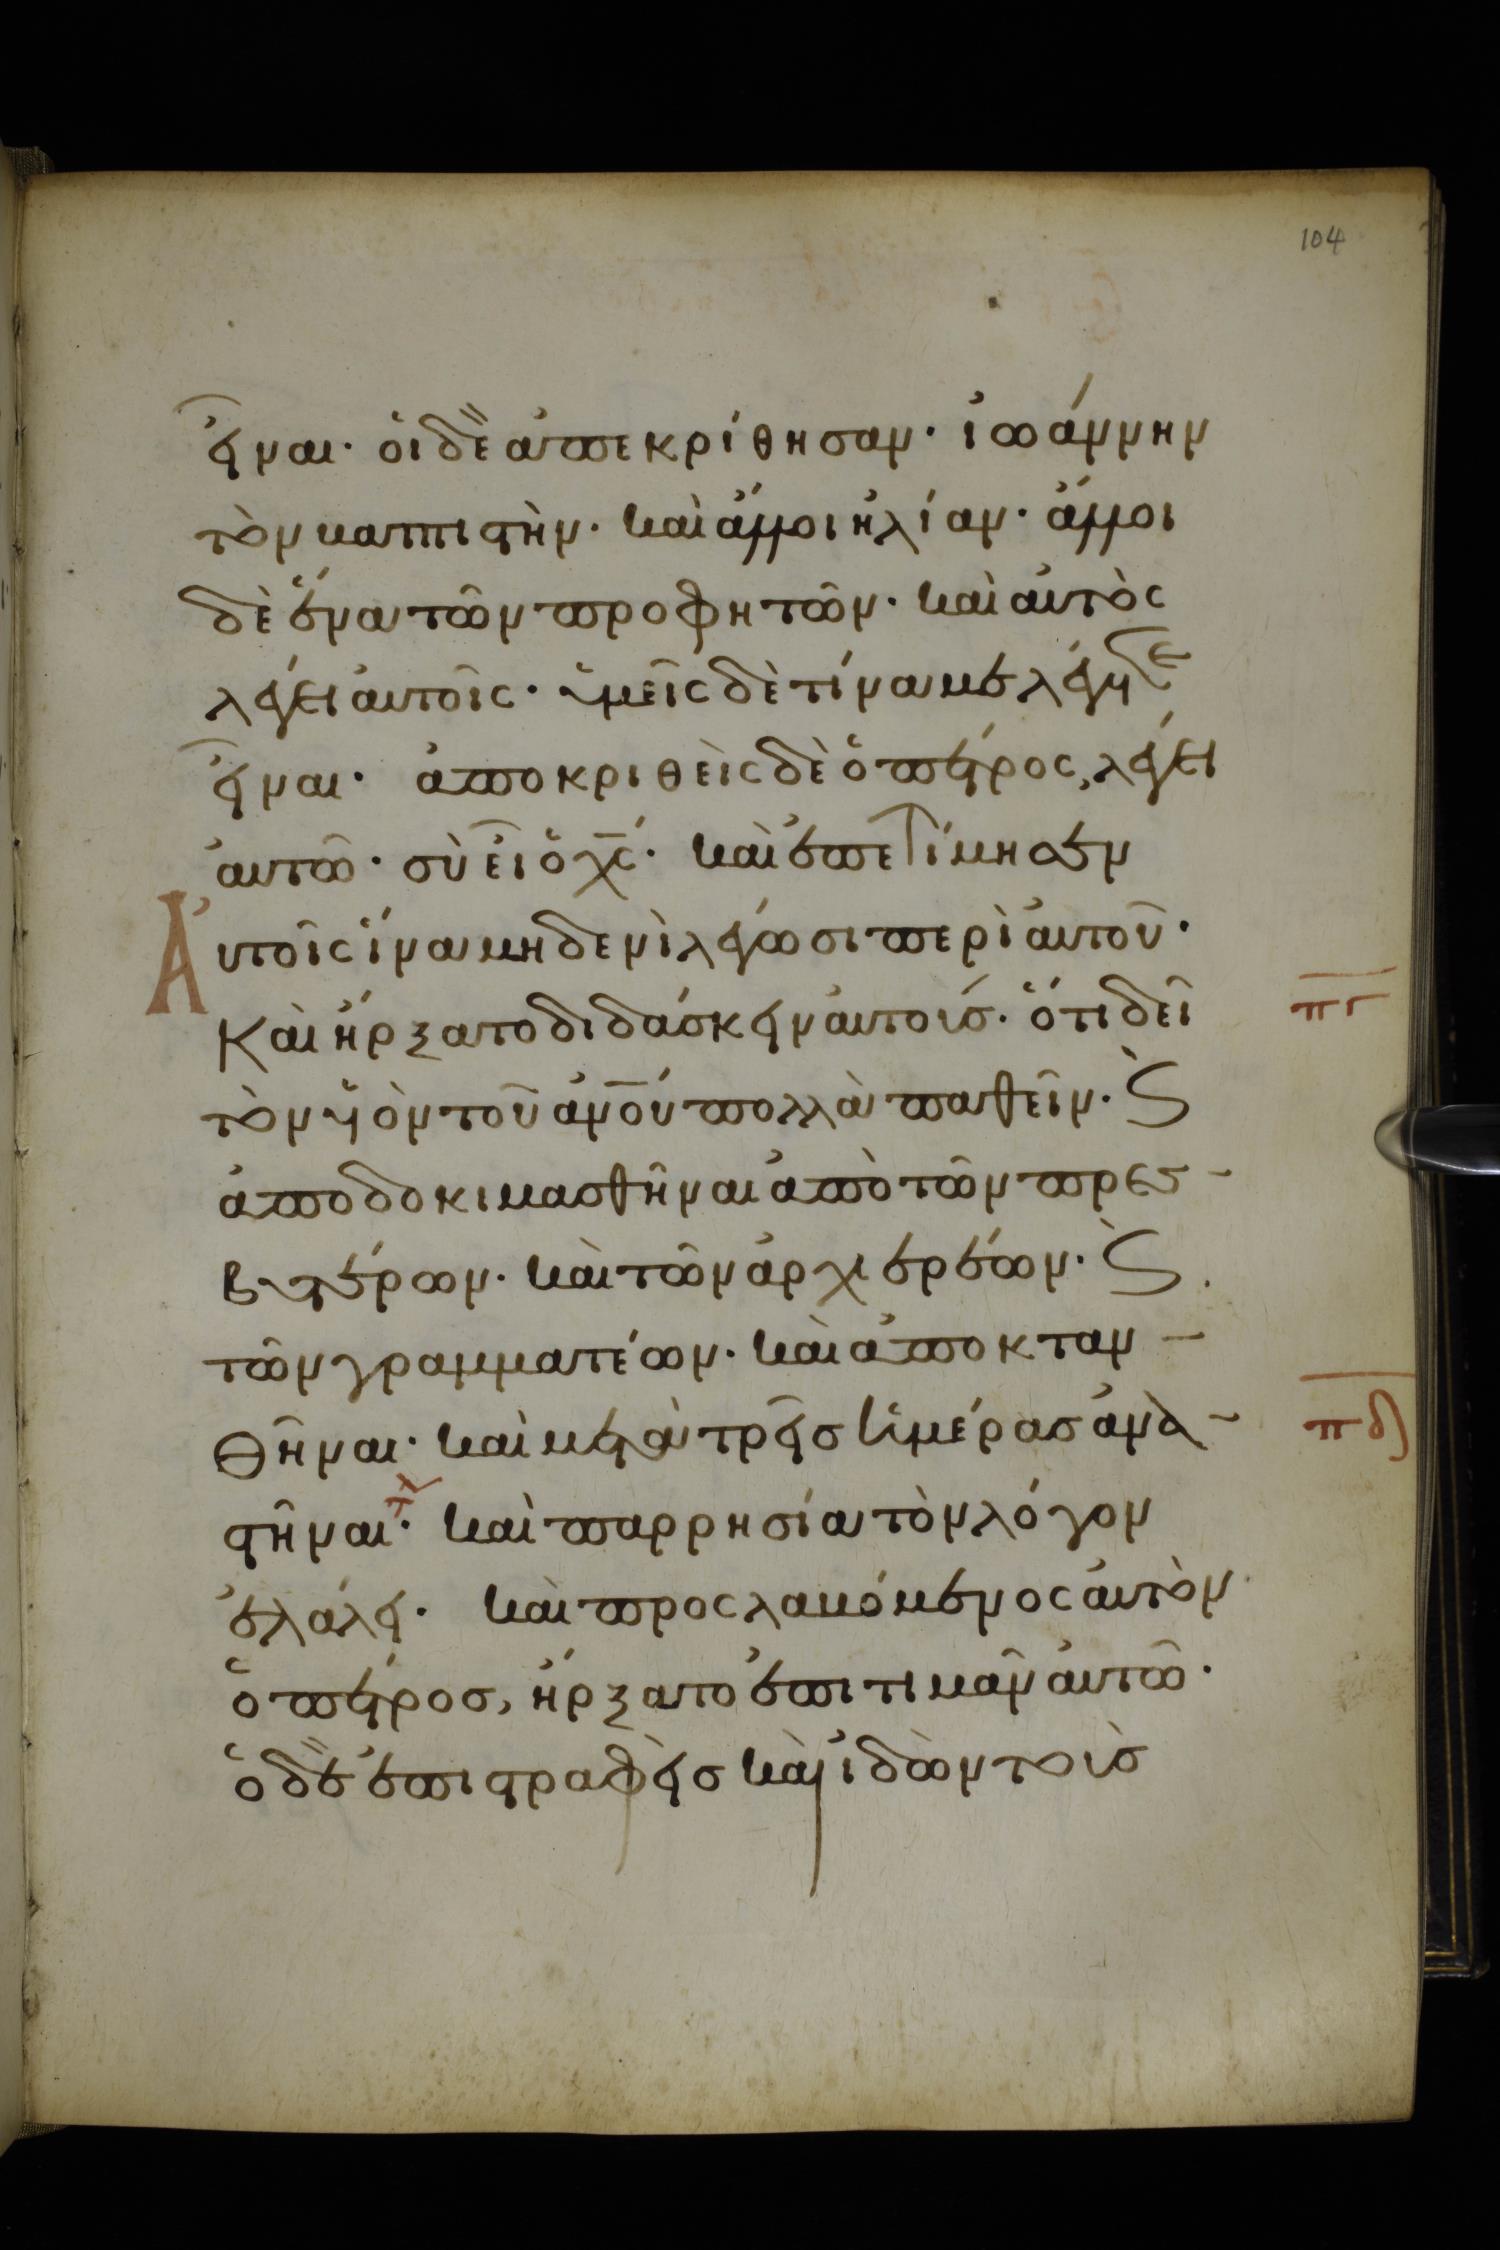 104
εἶναι· οἱ δὲ ἀπεκρίθησαν· ἰωάννην
τὸν βαπτιστὴν· καὶ ἄλλοι ἠλίαν· ἄλλοι
δὲ ἕνα τῶν προφητῶν· καὶ αὐτὸς
λέγει αὐτοῖς· ὑμεῖς δὲ τίνα με λέγετε
εἶναι· ἀποκριθεὶς δὲ ὁ πέτρος, λέγει
αὐτῶ· σὺ εἶ ὁ χς· καὶ ἐπετίμησεν
Αὐτοῖς ἵνα μηδενὶ λέγωσι περὶ αὐτοῦ·
πγ
Καὶ ἤρξατο διδάσκειν αὐτούς· ὅτι δεῖ
τὸν υἱὸν τοῦ ἀνου πολλὰ παθεῖν· ϛ
ἀποδοκιμασθῆναι ἀπὸ τῶν πρεσ-
βυτέρων· καὶ τῶν ἀρχιερέων· ϛ
τῶν γραμματέων· καὶ ἀποκταν-
θῆναι· καὶ μετὰ τρεῖς ἡμέρας ἀνα-
πδ
στῆναι· τλ καὶ παρρησία τὸν λόγον
ἐλάλει· καὶ προσλαβόμενος αὐτὸν
ὁ πέτρος, ἤρξατο ἐπιτιμᾶν αὐτῶ·
ὁ δὲ ἐπιστραφεὶς καὶ ἰδὼν τοὺς